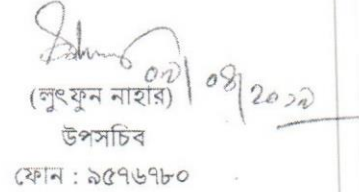 ০৯/০৪/২০১৯
(লুৎফুন নাহার)
উপসচিব
ফোন : ৯৫৭৬৭৮০